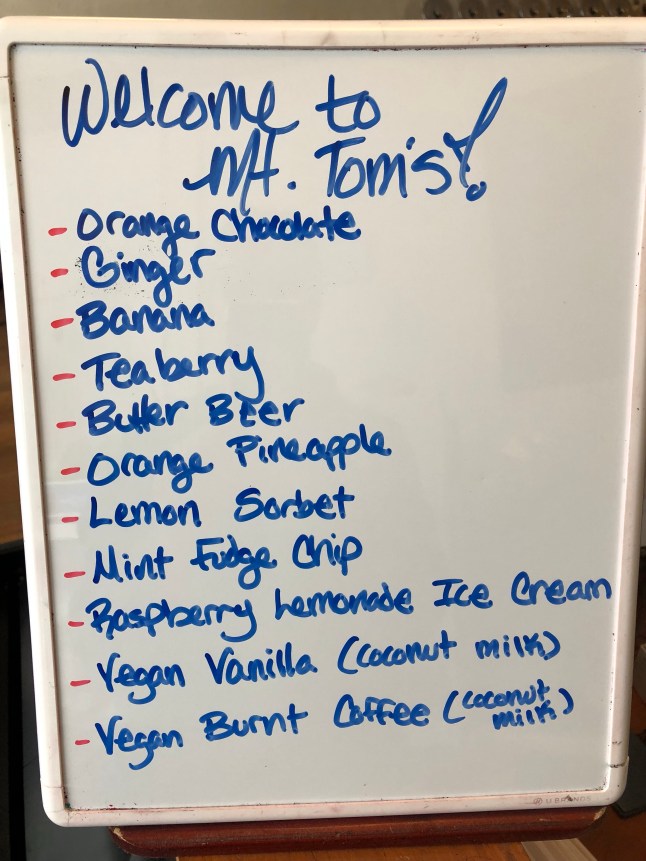 Welcome to
Mt. Tom's!
- Orange Chocolate
- Ginger
- Banana
- Teaberry
- Butter Beer
- Orange Pineapple
- Lemon Sorbet
- Mint Fudge Chip
- Raspberry Lemonade Ice Cream
- Vegan Vanilla (coconut milk)
- Vegan Burnt Coffee (coconut
milk)
U BRANDS